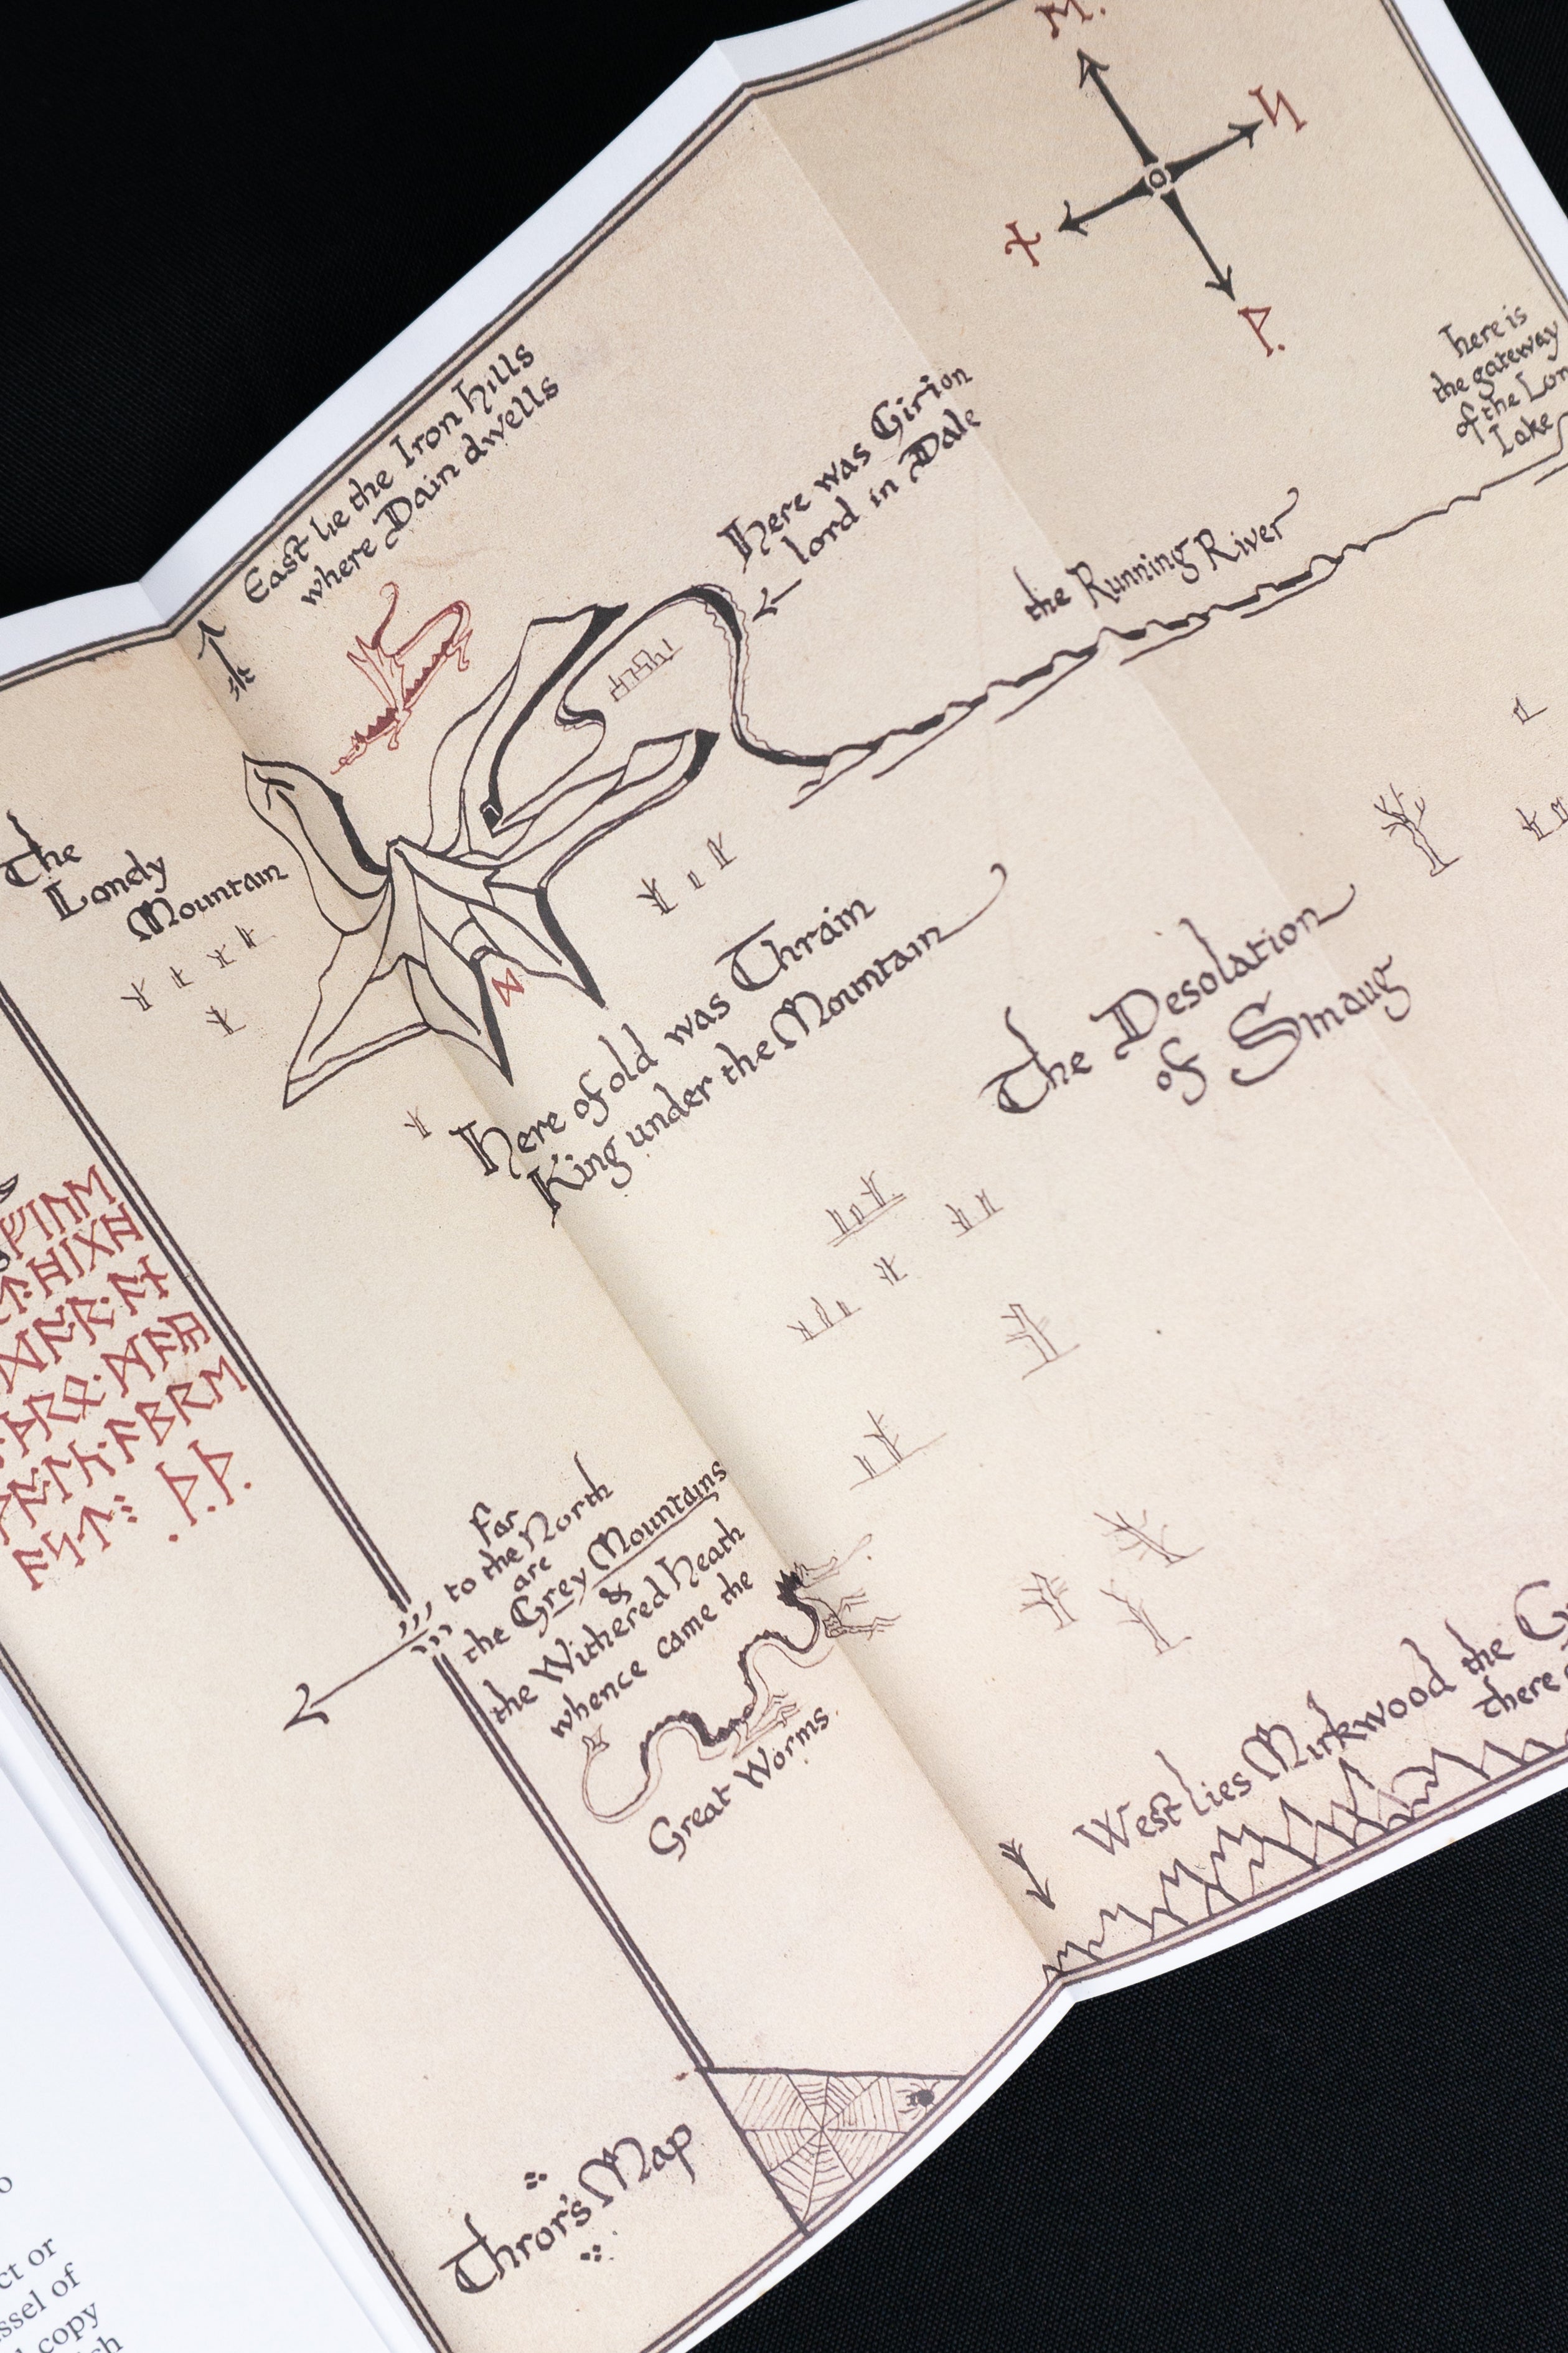 East lie the Iron Hills
where Dain dwells
There was Girion
lord in Dale
ᛖ.
ᛋ
ᚷ
ᚹ.
here is
the gateway
of the
Lake
the Running River
The
Lonely
Mountain
ᛞ
Here of old was Thrain
King under the Mountain
The Desolation
of Smaug
ᚠᛁᚢᛖ
ᛏ᛫ᚻᛁᚷᚻ
ᛞᚩᚱ᛫ᚪᚾ
ᚦᚱᛟ᛫ᛗᚪᚣ
ᚪᛒᚱᛖ
ᚪᛋᛏ᛬ ᚦ᛫ᚦ᛫
Far
to the North
are
the Grey Mountains
&
the Withered Heath
whence came the
Great Worms.
West lies Mirkwood the
there
Thror's Map
ct or
ssel of
copy